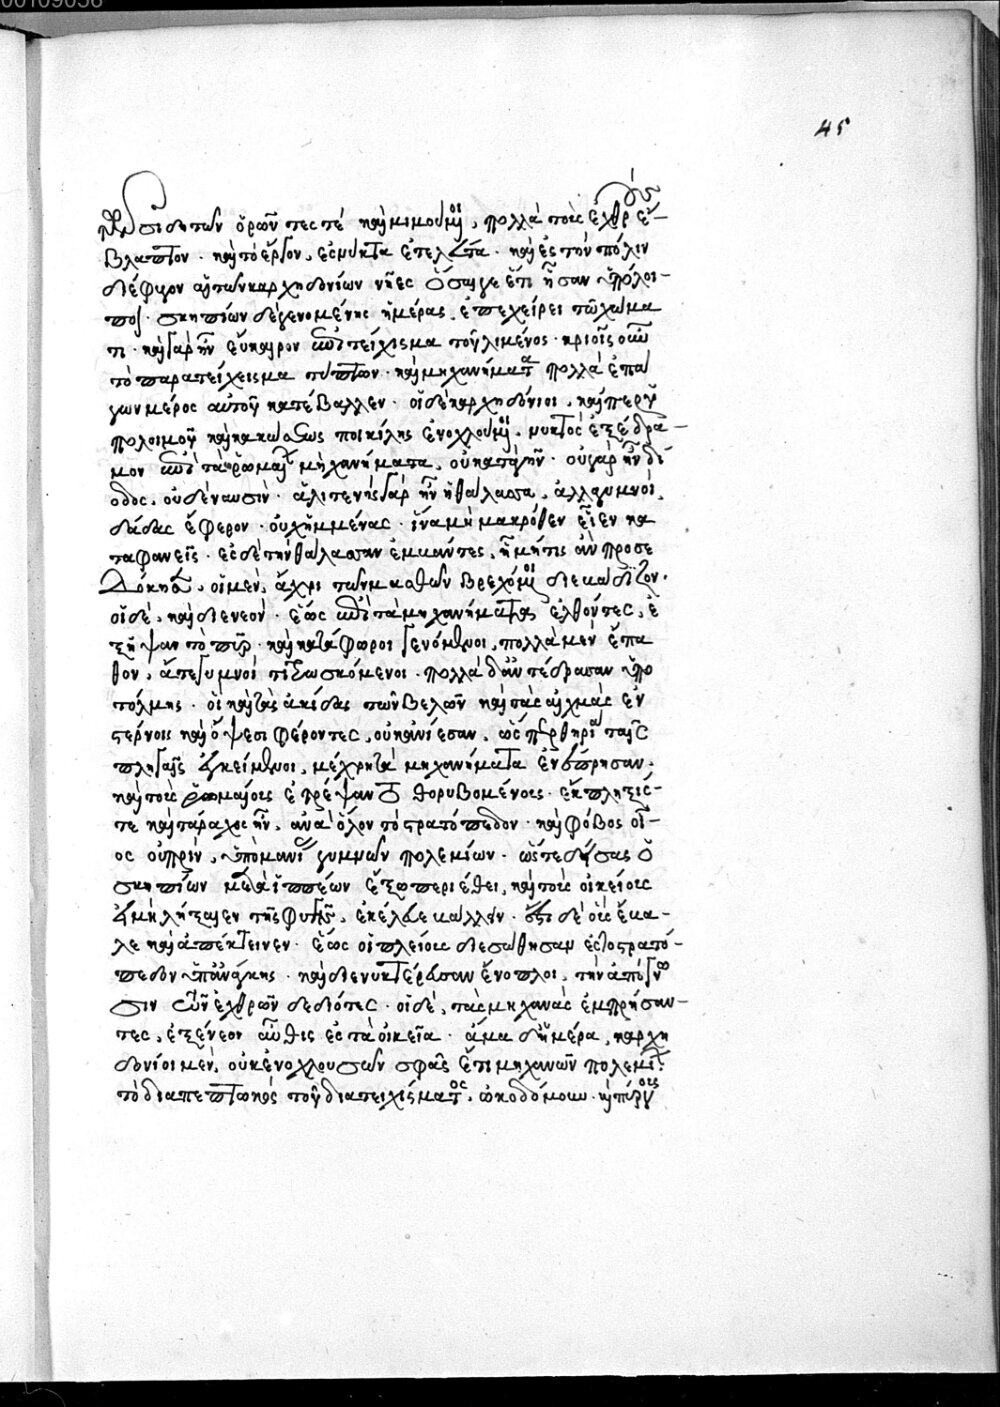 Ῥοδίων τῶν ὁρώντων τέ τε καὶ μιμουμένοι, πολλὰ τοὺς ἐχθροὺς ἔ-
βλαπτον. καὶ τὸ ἔργον, ἐς νύκτα ἐτελεύτα. καὶ ἐς τὴν πόλιν
διέφυγον αὐτῶν καρχηδονίων νῆες ὅσαι γε ἔτι ἦσαν ὑπόλοι-
ποι. σκηπίων δὲ γενομένης ἡμέρας, ἐπεχείρει τῷ χώμα
τι. καὶ γὰρ ἦν εὔκαιρον ἐπιτείχισμα τοῦ λιμένος. κριοῖς οὖν
τὸ παρατείχεισμα τύπτων. καὶ μηχανήματα πολλὰ ἐπα
γων μέρος αὐτοῦ κατέβαλλεν. οἱ δὲ καρχηδόνιοι, καίπερ ὑ
πὸ λιμοῦ καὶ κακώσεως ποικίλης ἐνοχλούμενοι, νυκτὸς ἐξέδρα-
μον ἐπὶ τὰ ῥωμαίων μηχανήματα, οὐ κατὰ γῆν. οὐ γὰρ ἦν δί
οδος, οὐδὲ ναυσὶν. ἁλιτενὴς γὰρ ἦν ἡ θάλασσα, ἀλλὰ γυμνοὶ,
δᾶδας ἔφερον. οὐχ ἡμμένας. ἵνα μὴ μακρόθεν εἶεν κα
ταφανεῖς. ἐς δὲ τὴν θάλασσαν ἐμβάντες, ἧ μήτις ἂν προσε
δόκησε, οἱ μὲν, ἄχρι τῶν μασθῶν βρεχόμενοι διεβάδιζον.
οἱ δὲ, καὶ διένεον. ἕως ἐπὶ τὰ μηχανήματα ἐλθόντες, ἐ
ξῆψαν τὸ πῦρ. καὶ κατάφωροι γενόμενοι, πολλὰ μὲν ἔπα
θον, ἅτε γυμνοὶ τιτρωσκόμενοι. πολλὰ δ' ἀντέδρασαν ὑπὸ
τόλμης. οἳ καὶ τὰς ἀκίδας τῶν βελῶν καὶ τὰς αἰχμὰς ἐν
στέρνοις καὶ ὄψεσι φέροντες, οὐκ ἀνίεσαν, ὥσπερ θηρία ταῖς
πληγαῖς ἐγκείμενοι, μέχρι τὰ μηχανήματα ἐνέπρησαν.
καὶ τοὺς ῥωμαίους ἐτρέψαντο θορυβομένους. ἔκπληξίς-
τε καὶ τάραχος ἦν, ἀνὰ ὅλον τὸ στρατόπεδον. καὶ φόβος οἷ-
ος οὐ πρὶν, ὑπὸ μανίας γυμνῶν πολεμίων. ὥστε δείσας ὁ
σκηπίων μετὰ ἱππέων ἔξω περιέθει, καὶ τοὺς οἰκείους
εἰ μὴ λήξαιεν τῆς φυγῆς, ἐκέλευε βάλλειν. ἔστι δὲ οὓς ἔβα-
λε καὶ ἀπέκτεινεν. ἕως οἱ πλείους διεσώθησαν ἐς τὸ στρατό-
πεδον ὑπ' ἀνάγκης. καὶ διενυκτέρευσαν ἔνοπλοι, τὴν ἀπόγνω
σιν τῶν ἐχθρῶν δεδιότες. οἱ δὲ, τὰς μηχανὰς ἐμπρήσαν-
τες, ἐξένεον αὖθις ἐς τὰ οἰκεῖα. ἅμα δ' ἡμέρα, καρχη
δόνιοι μὲν, οὐκ ἐνοχλουσῶν σφᾶς ἔτι μηχανῶν πολεμίων
τὸ διαπεπτωκὸς τοῦ διατειχίσματος, ὠκοδόμουν. καὶ πύργους